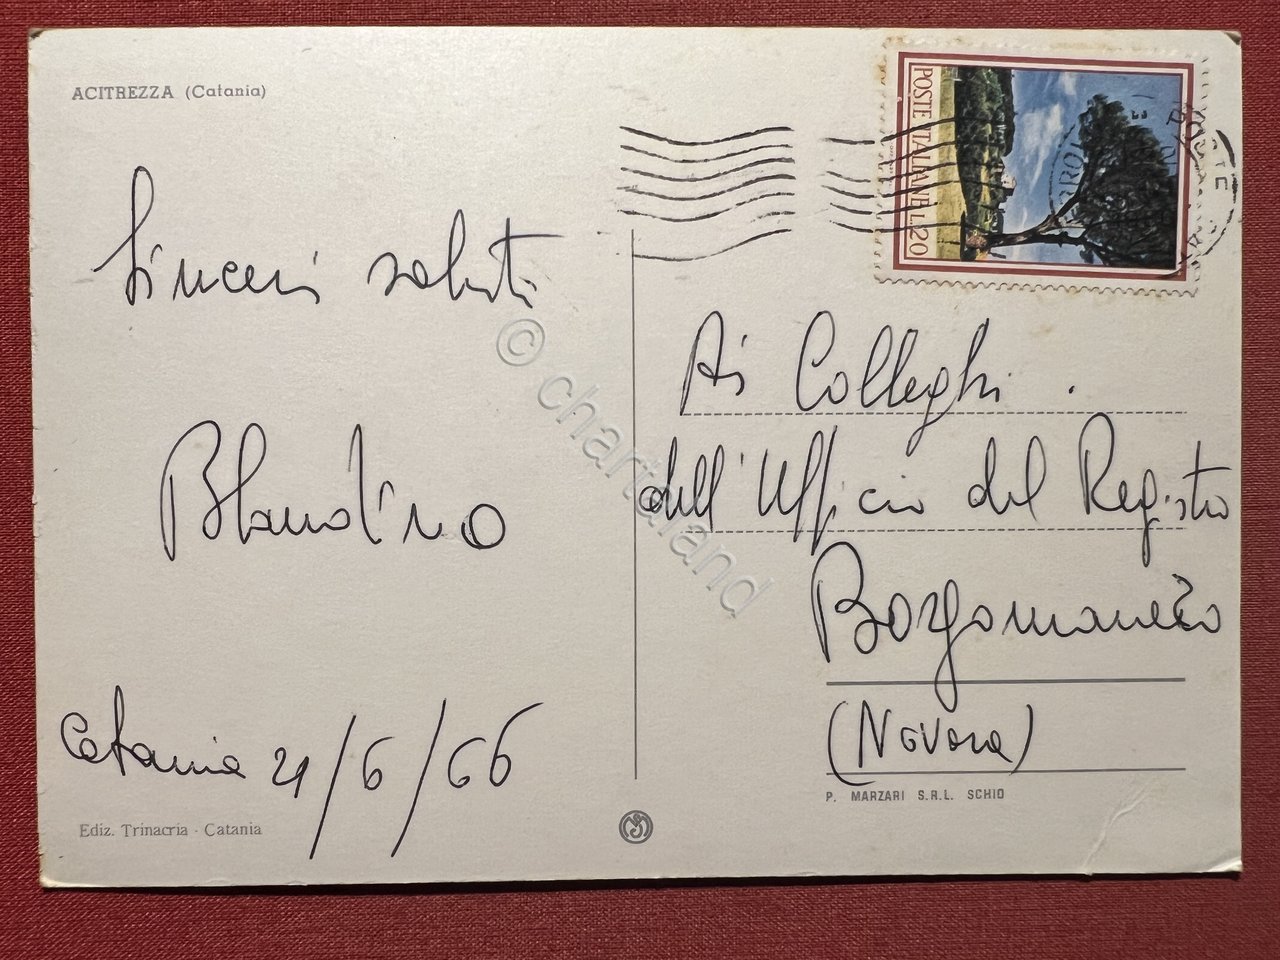 ACITREZZA (Catania)
Sinceri saluti
Blandino
Catania 21/6/66
Ediz. Trinacria - Catania
POSTE ITALIANE L.20
POSTE
Ai Colleghi
dell'Ufficio del Registro
Borgomanero
(Novara)
P. MARZARI S.R.L. SCHIO
© chartaland